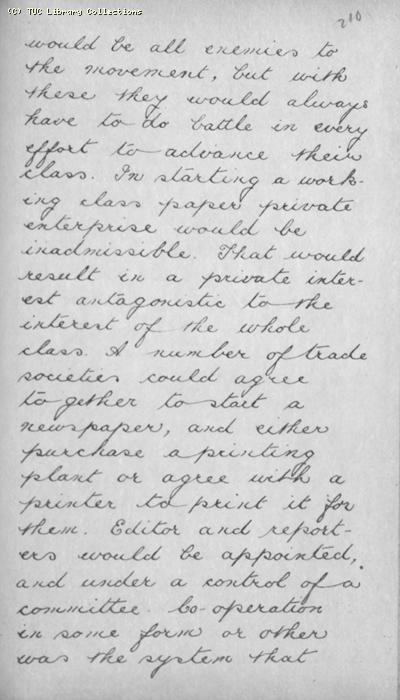 (C) TUC Library Collections
210
would be all enemies to
the movement, but with
these they would always
have to do battle in every
effort to advance their
class. In starting a work-
ing class paper private
enterprise would be
inadmissible. That would
result in a private inter-
est antagonistic to the
interest of the whole
class. A number of trade
societies could agree
together to start a
newspaper, and either
purchase a printing
plant or agree with a
printer to print it for
them. Editor and report-
ers would be appointed,
and under a control of a
committee. Co-operation
in some form or other
was the system that